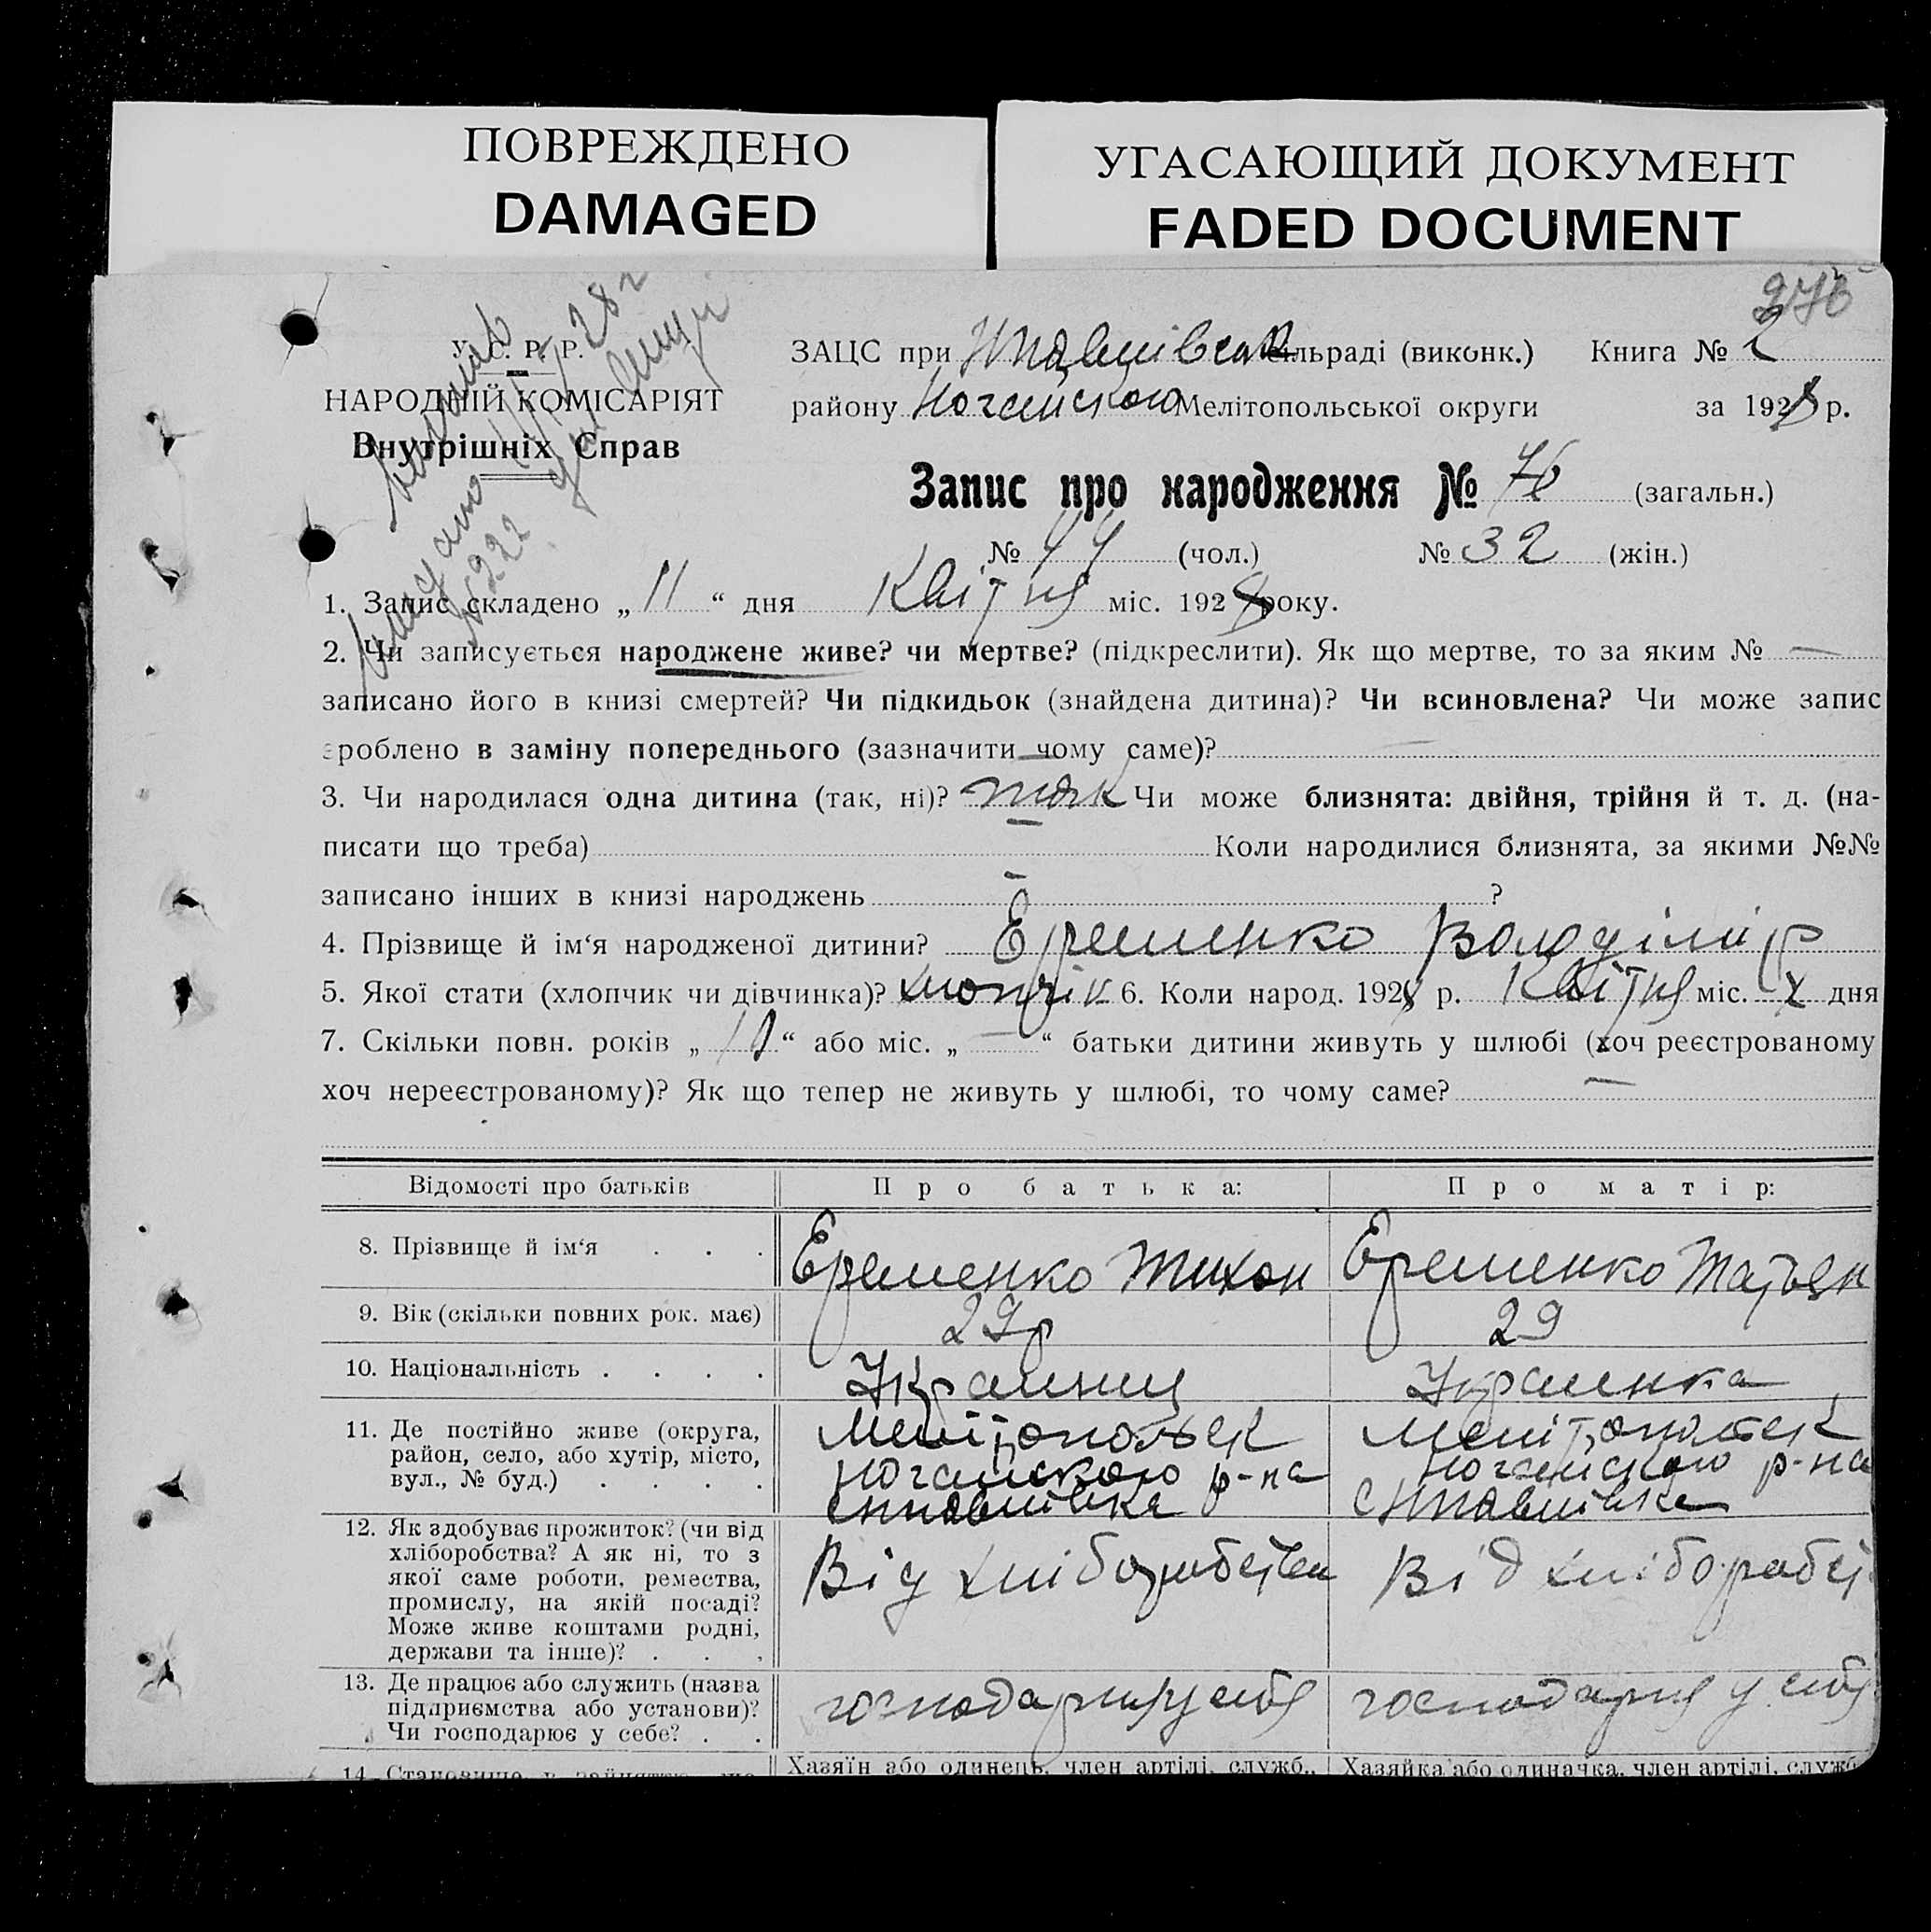 ПОВРЕЖДЕНО
DAMAGED
УГАСАЮЩИЙ ДОКУМЕНТ
FADED DOCUMENT
У. С. Р. Р.
НАРОДНІЙ КОМІСАРІЯТ
Внутрішніх Справ
№ 222
ЗАЦС при сільраді (виконк.) Книга № 2
району Ногайского Мелітопольської округи за 1928 р.
Запис про народження № 76 (загальн.)
№ 44 (чол.) № 32 (жін.)
1. Запис складено „ 11 “ дня Квітня міс. 1928 року.
2. Чи записується народжене живе? чи мертве? (підкреслити). Як що мертве, то за яким № —
записано його в книзі смертей? Чи підкидьок (знайдена дитина)? Чи всиновлена? Чи може запис
зроблено в заміну попереднього (зазначити чому саме)? —
3. Чи народилася одна дитина (так, ні)? так Чи може близнята: двійня, трійня й т. д. (на-
писати що треба) — Коли народилися близнята, за якими №№
записано інших в книзі народжень — ?
4. Прізвище й ім‘я народженої дитини? Еременко Володімір
5. Якої стати (хлопчик чи дівчинка)? хлопчік 6. Коли народ. 1928 р. Квітня міс. дня
7. Скільки повн. років „ “ або міс. „ — “ батьки дитини живуть у шлюбі (хоч реєстрованому
хоч нереєстрованому)? Як що тепер не живуть у шлюбі, то чому саме? —
Відомості про батьків Про батька: Про матір:
8. Прізвище й ім‘я . . . Еременко Тихон Еременко Татьян
9. Вік (скільки повних рок. має) 29 р 29
10. Національність . . . . Украинец Украинка
11. Де постійно живе (округа, район, село, або хутір, місто, вул., № буд.) . . . .
Мелітопольск Ногайского р-на
Мелітопольск Ногайского р-на
12. Як здобуває прожиток? (чи від хліборобства? А як ні, то з якої саме роботи, ремества, промислу, на якій посаді? Може живе коштами родні, держави та інше)? . . .
Від хліборобства
Від хліборобст
13. Де працює або служить (назва підприємства або установи)? Чи господарює у себе? . .
господарня у себя
господарня у себя
14. Становище у занятті
Хазяїн або одинець, член артілі, служб.,
Хазяйка або одиначка, член артілі, служб